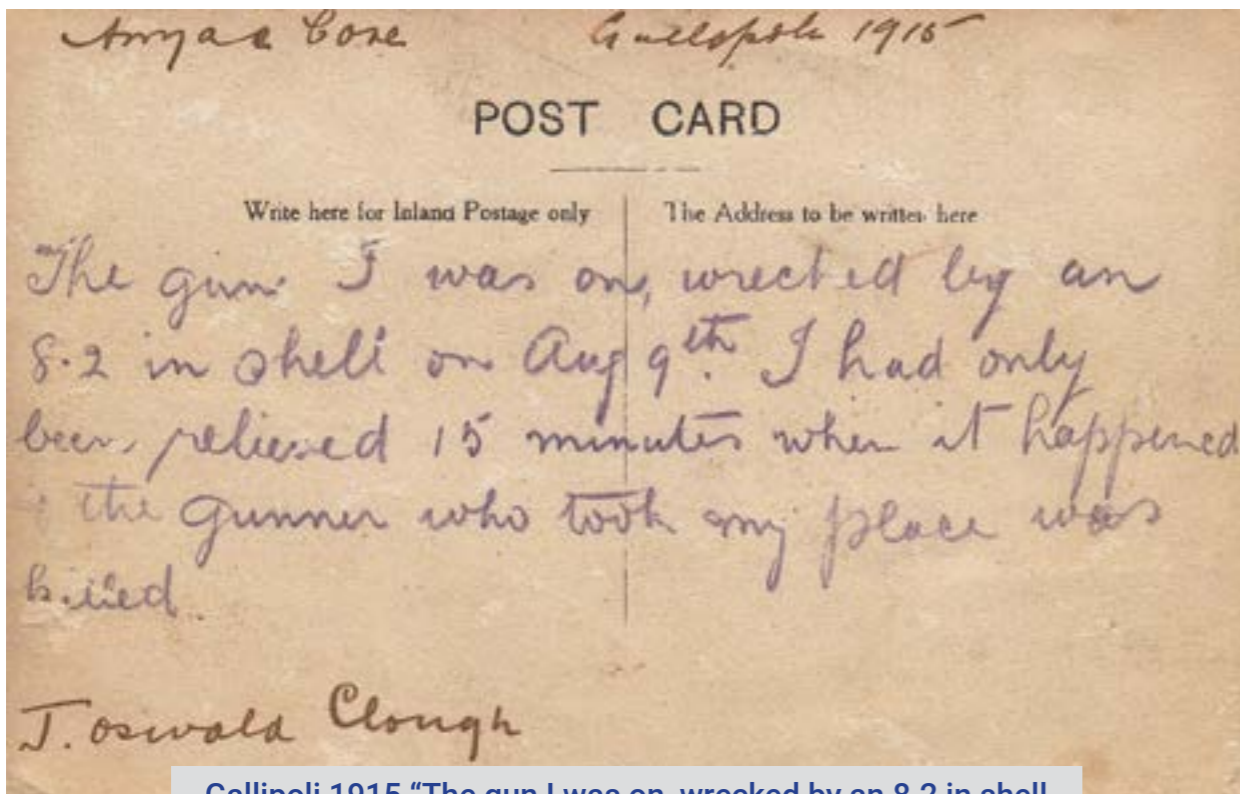 Anyac Cove Gallipoli 1915
POST CARD
Write here for Inland Postage only The Address to be written here
The gun I was on, wrecked by an
8.2 in shell on Aug 9th. I had only
been relieved 15 minutes when it happened
& the gunner who took my place was
killed.
J. Oswald Clough
Gallipoli 1915 “The gun I was on, wrecked by an 8.2 in shell